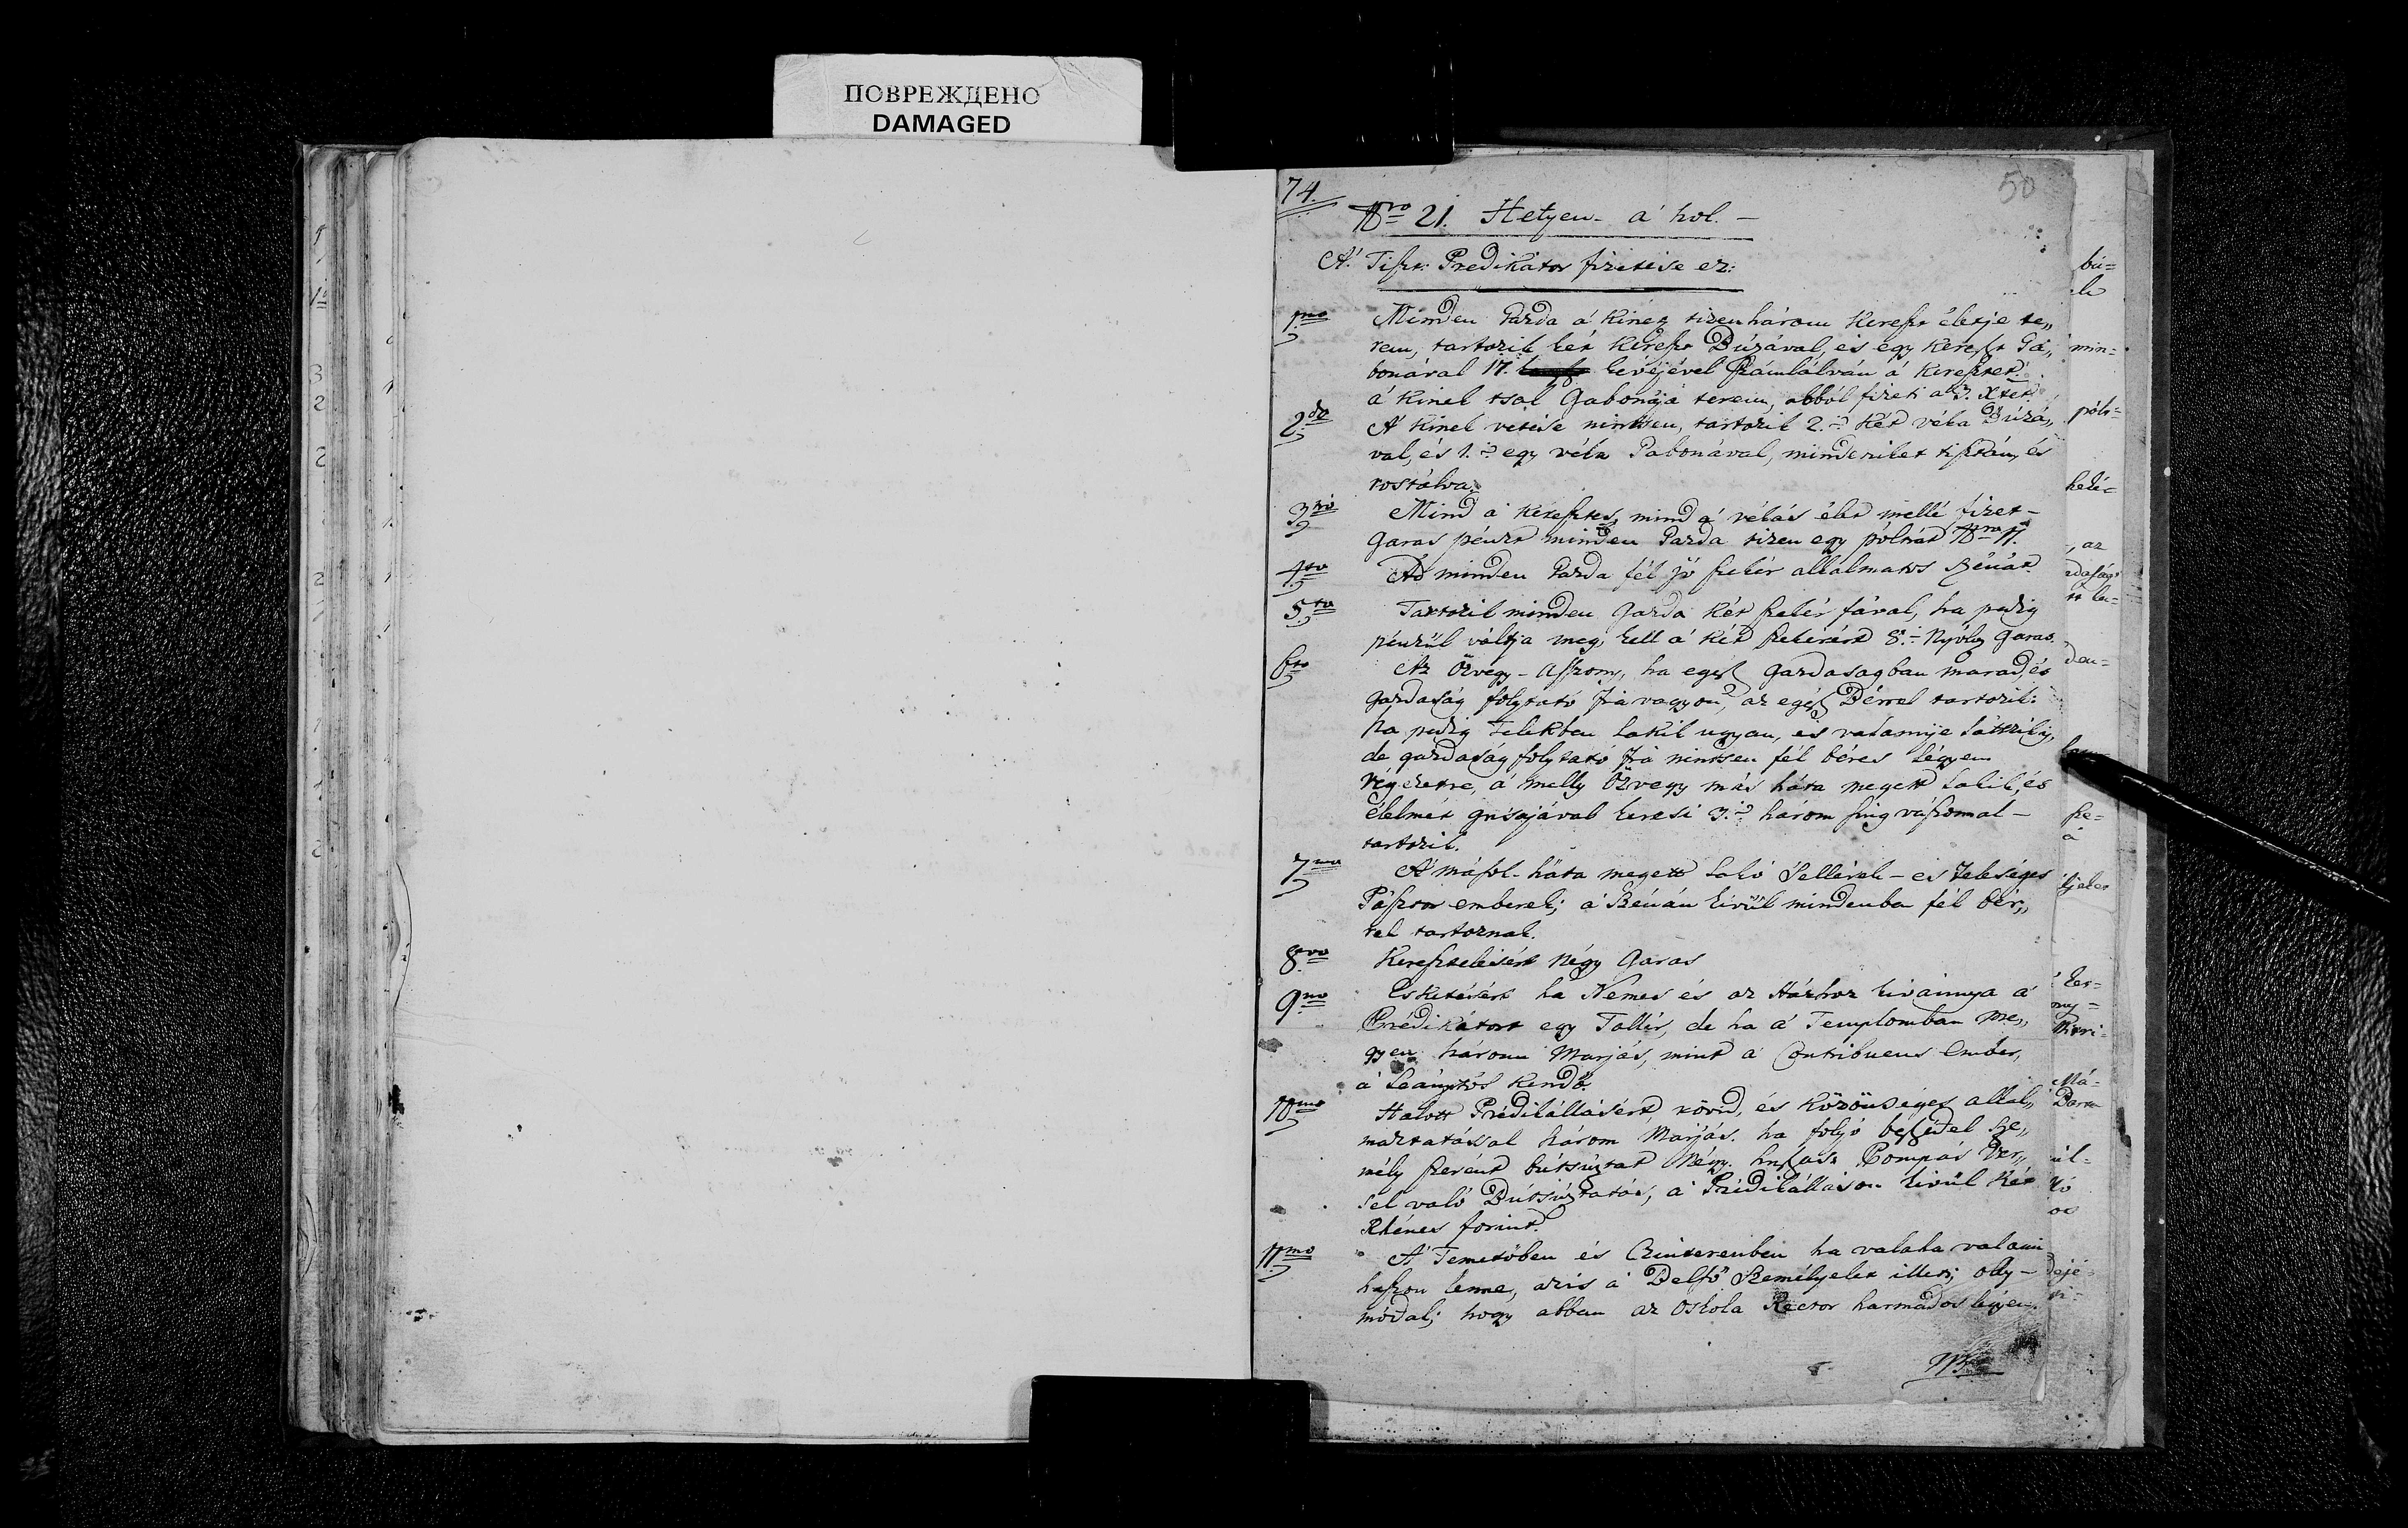 ПОВРЕЖДЕНО
DAMAGED
74.
50
Nro 21. Hetyen- a' hol. -
A' Tiszt: Predikátor fizetése ez:
1mo Minden Gazda a' kinek tizenhárom Kereszt életje te,,
rem, tartozik két kereszt Búzával, és egy kereszt Ga,,
bonával 17. kévéjével számlálván a' keresztet.
a' kinek tsak Gabonája terem, abból fizeti a' 3. Xtet.
2do A' kinek vetése nintsen, tartozik 2.ő Két véka Búzá,,
val, és 1.ő egy véka Gabonával, mindeniket tisztán, és
rostálva.
3tió Mind a' keresztes, mind a' vékás élet mellé fizet-
Garas pénzt minden Gazda tizen egy póltrát Nro 11.
4to Ad minden Gazda fél jó szekér alkalmatos Szénát.
5to Tartozik minden Gazda két szekér fával, ha pedig
pénzül váltja meg, kell a' két szekérért 8.- Nyólcz Garas.
6to Az Özvegy-Aszszony, ha egész gazdaságban marad, és
gazdaság folytató fia vagyon, az egész Bérrel tartozik:
ha pedig Telekben lakik ugyan, és valamije láttzik is,
de gazdaság folytató fia nintsen fél béres légyen
Végezetre, a' melly Özvegy más háta megett lakik, és
élelmét gusajával keresi 3.ő három sing vászonnal-
tartozik.
7mo A' másol-háta megett lakó Sellérek- és Feleséges
Pásztor emberek; a' Szénán kivül mindenben fél bér,,
rel tartoznak.
8vo Keresztelésért Négy Garas
9no Esketésért ha Nemes és az Házhoz kivánnya a'
Prédikátort egy Tallér, de ha a' Templomban me,,
gyen három Marjás, mint a' Contribuens Ember,
a' Leánytól kendő.
10mo Halott Prédikállásért rövid, és közönséges alkal,,
maztatással három Marjás. ha folyó beszédel sze,,
mély szerént bútsúztat Négy. huszas. Pompás Ver,,
sel való Bútsúztatás, a' Prédikálláson kivül két
Rhénes forint.
11mo A' Temetőben és Czinteremben ha valaha valami
haszon lenne, az is a' Belső Személyeket illeti; olly-
módal; hogy abban az Oskola Rector harmados légyen.
bú=
min=
heté=
, az
den=
sze=
a'
Má=